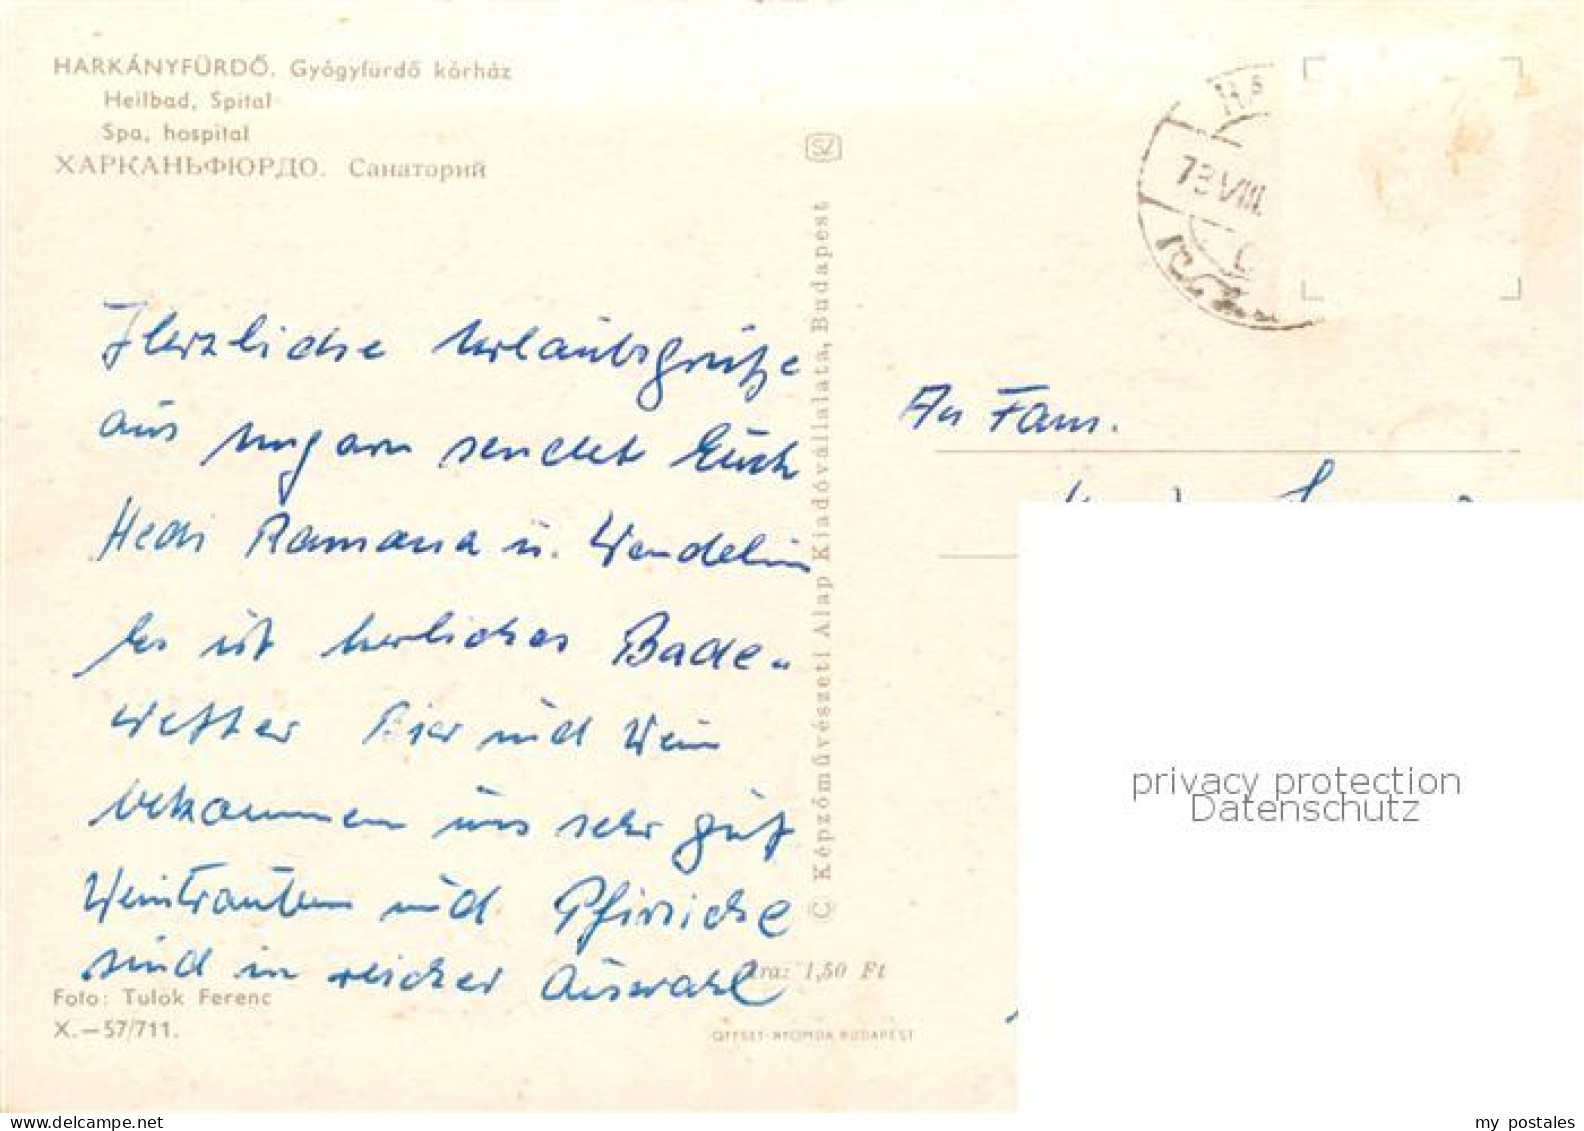 HARKÁNYFÜRDŐ. Gyógyfürdő kórház
Heilbad, Spital
Spa, hospital
ХАРКАНЬФЮРДО. Санаторий
Herzliche Urlaubsgrüße
aus Ungarn sendet Euch
Hedi Ramona u. Wendelin
Es ist herliches Bade-
wetter Bier und Wein
bekommen uns sehr gut
Weintrauben und Pfirsiche
sind in reicher Auswahl
Foto: Tulok Ferenc
X.—57/711.
SZ
© Képzőművészeti Alap Kiadóvállalata, Budapest
Ára: 1,50 Ft
OFFSET-NYOMDA BUDAPEST
73 VIII.
An Fam.
privacy protection
Datenschutz
www.delcampe.net
my_postales